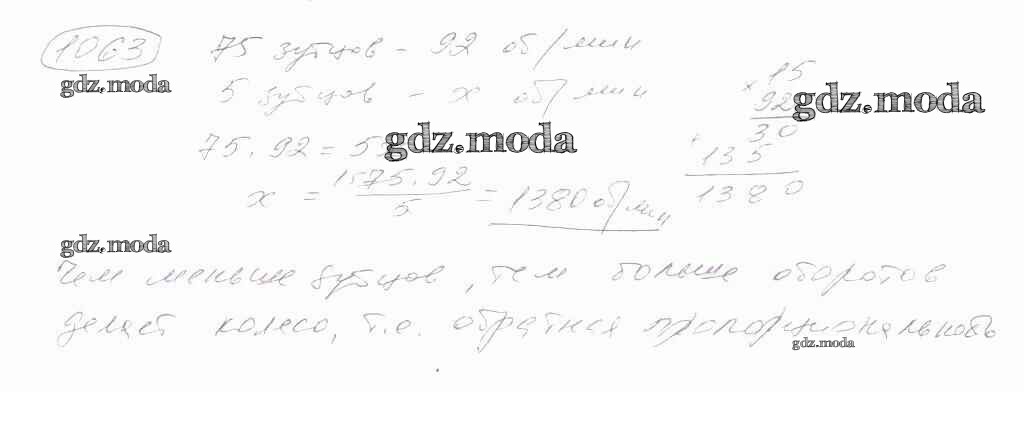 1063 75 зубцов - 92 об/мин
gdz.moda
5 зубцов - x об/мин
× 15
92
gdz.moda
30
+ 135
1380
75 · 92 = 5
gdz.moda
x = 15 75 · 92 / 5 = 1380 об/мин
gdz.moda
Чем меньше зубцов, тем больше оборотов
делает колесо, т.е. обратная пропорциональность
gdz.moda